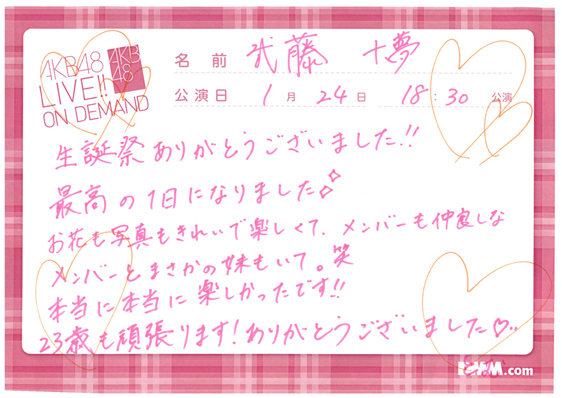 AKB48
LIVE!!
ON DEMAND
AKB
48
名前 武藤 十夢
公演日 1月24日 18:30 公演
生誕祭ありがとうございました!!
最高の1日になりました
お花も写真もきれいで楽しくて、メンバーも仲良しな
メンバーとまさかの妹もいて。笑
本当に本当に楽しかったです!!
23歳も頑張ります!ありがとうございました♡..
DMM.com